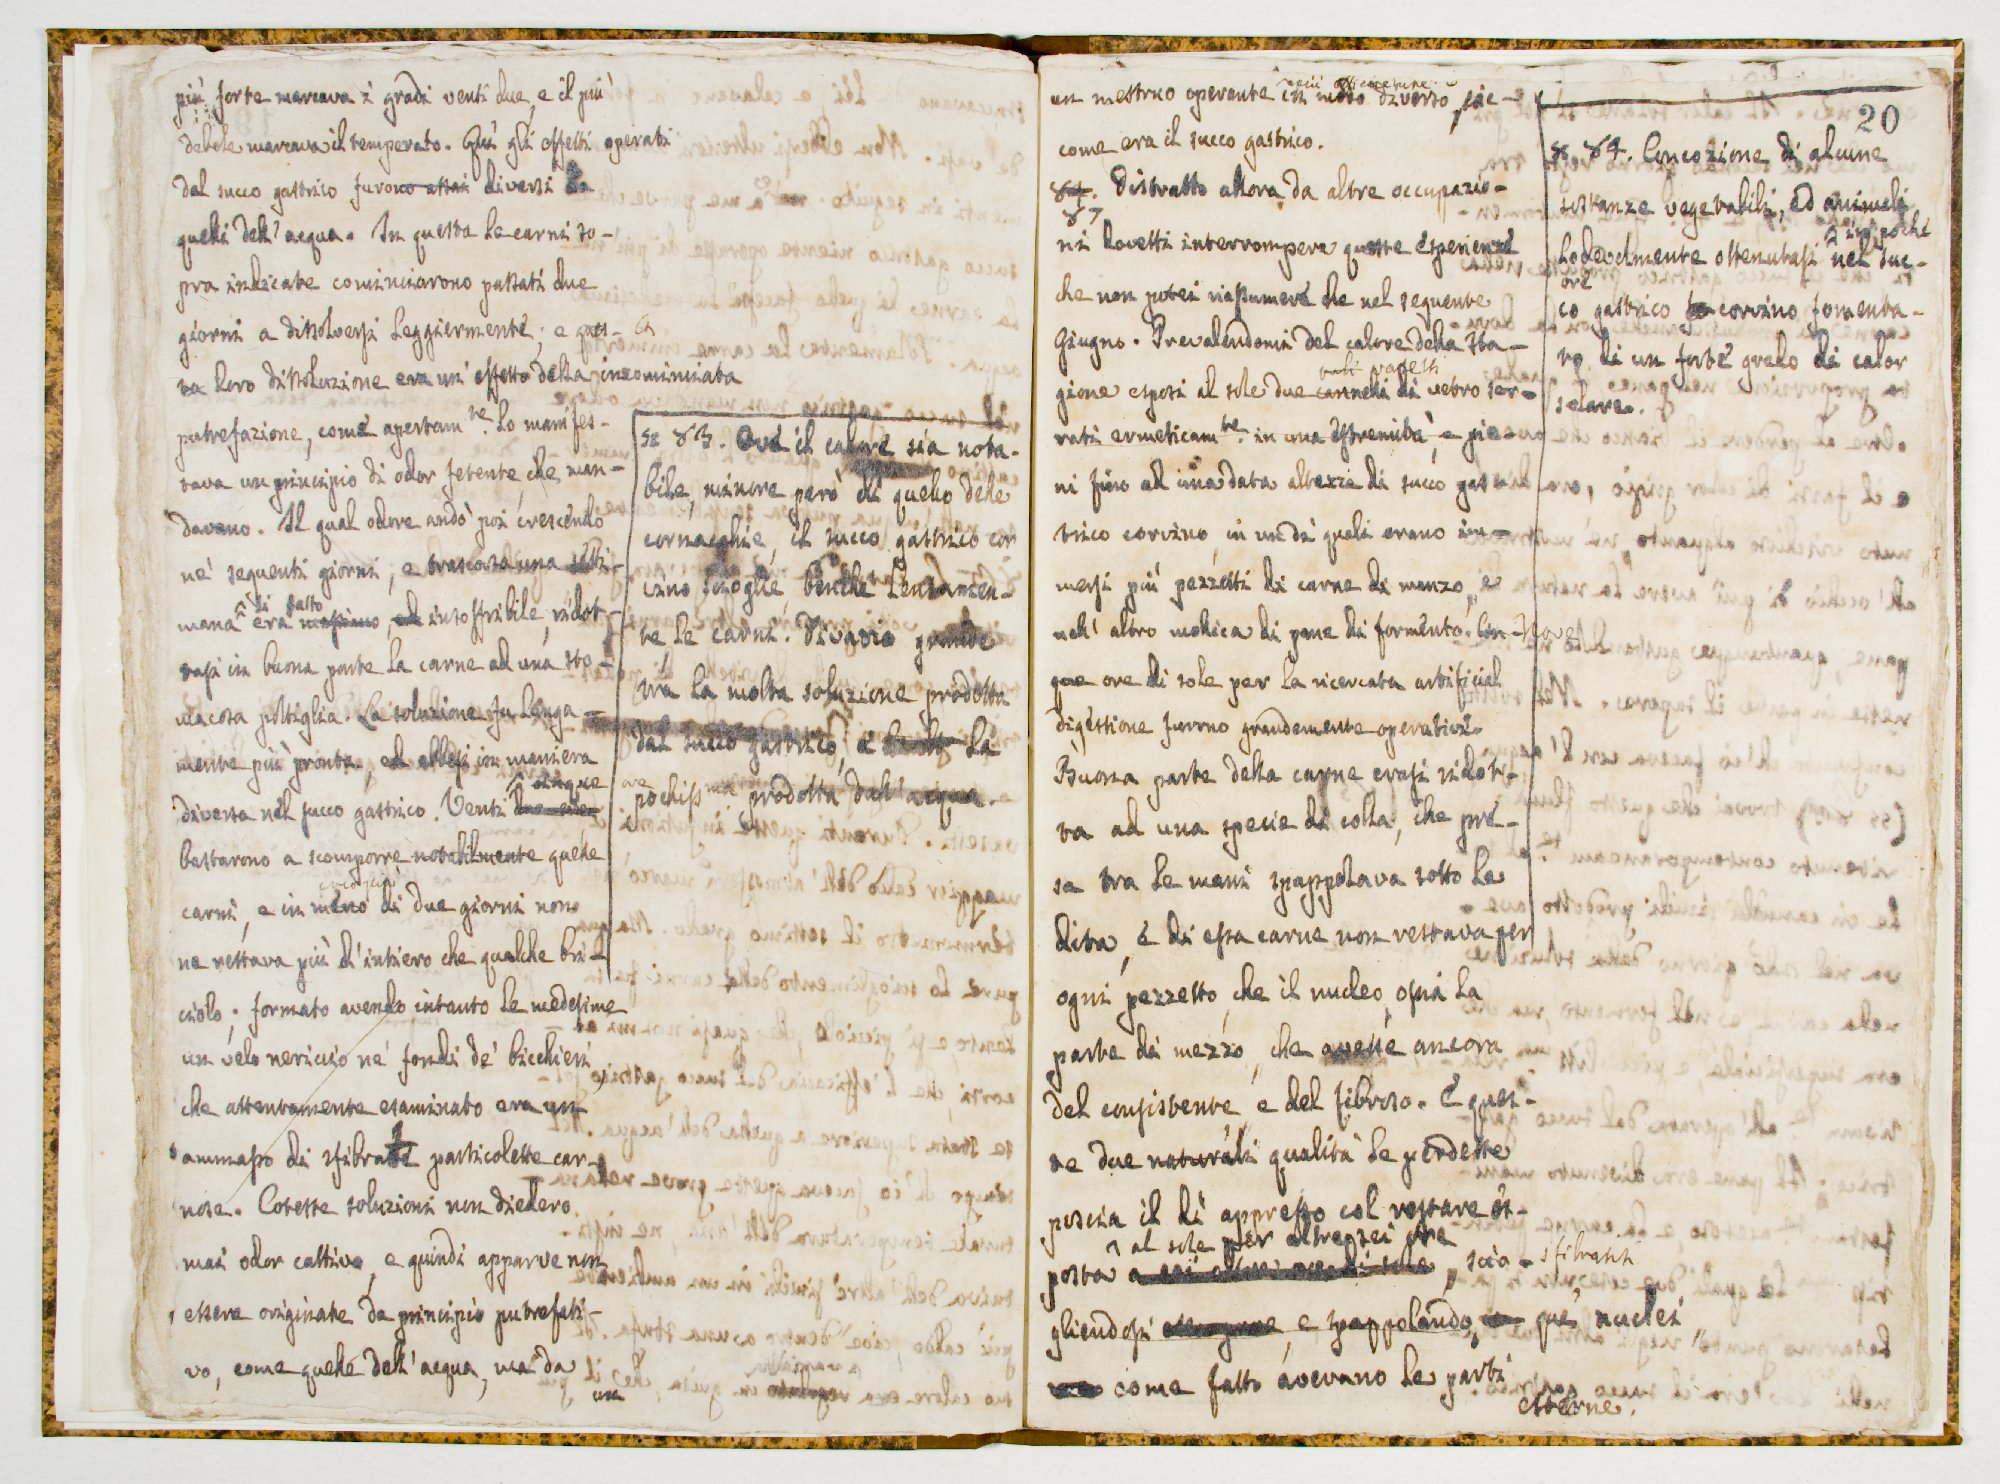 più forte marcava i gradi venti due, e il più
debole marcava il temperato. Quì gli effetti operati
dal succo gastrico furono assai diversi da
quelli dell'acqua. In questa le carni so-
pra indicate cominciarono passati due
giorni a dissolversi leggiermente; e ques-
ta loro dissoluzione era un'effetto della incominciata
putrefazione, come apertam.te lo manifes-
tava un principio di odor fetente, che man-
davano. Il qual odore andò poi crescendo
ne' seguenti giorni, e trascorsa una setti-
di fatto
mana era massimo, ed insoffribile, ridot-
tasi in buona parte la carne ad una sto-
macosa poltiglia. La soluzione fu lunga-
mente più pronta, ed ebbesi in maniera
cinque ore
diversa nel succo gastrico. Venti due ore
bastarono a scomporre notabilmente quelle
carni, e in meno di due giorni non
ne restava più d'intiero che qualche bri-
ciolo; formato avendo intanto le medesime
un velo nericcio ne' fondi de' bicchieri,
che attentamente esaminato era un
ammasso di sfibrate particolette car-
nose. Coteste soluzioni non diedero
mai odor cattivo, e quindi apparve non
essere originate da principio putrefatti-
vo, come quelle dell'acqua, ma da
un
§ 83. Ove il calore sia nota-
bile, minore però di quello delle
cornacchie, il succo gastrico cor
vino scioglie, benchè lentamen-
te, le carni. Divario grande
tra la molta soluzione prodotta
dal succo gastrico, e la
pochiss.ma prodotta dall'acqua.
20
un mestruo operante in modo diverso, sic-
come era il succo gastrico.
84. Distratto allora da altre occupazio-
87
ni dovetti interrompere queste esperienze
che non potei riassumere che nel seguente
Giugno. Prevalendomi del calore della sta-
gione esposi al sole due cannelli di vetro ser-
rati ermeticam.te in una estremità, e pie-
ni fino ad una data altezza di succo gas-
trico corvino, in un di quali erano im-
mersi più pezzetti di carne di manzo, e
nell'altro mollica di pane di formento. Cin- Nove
que ore di sole per la ricercata artificial
digestione furono grandemente operative.
Buona parte della carne erasi ridot-
ta ad una specie di colla, che pre-
sa tra le mani spappolava sotto le
dita, e di essa carne non restava per
ogni pezzetto, che il nucleo, ossia la
parte di mezzo, che avesse ancora
del consistente, e del fibroso. E ques-
te due naturali qualità le perdette
poscia il dì appresso col restare es-
al sole per altre sei ore
posta a sei altre ore di sole, scio-
gliendosi e spappolando que' nuclei sfibrati
come fatto avevano le parti
esterne.
§ 84. Concozione di alcune
sostanze vegetabili, ed animali
in poche
lodevolmente ottenutasi nel suc-
ore
co gastrico corvino fomenta-
to di un forte grado di calor
solare.